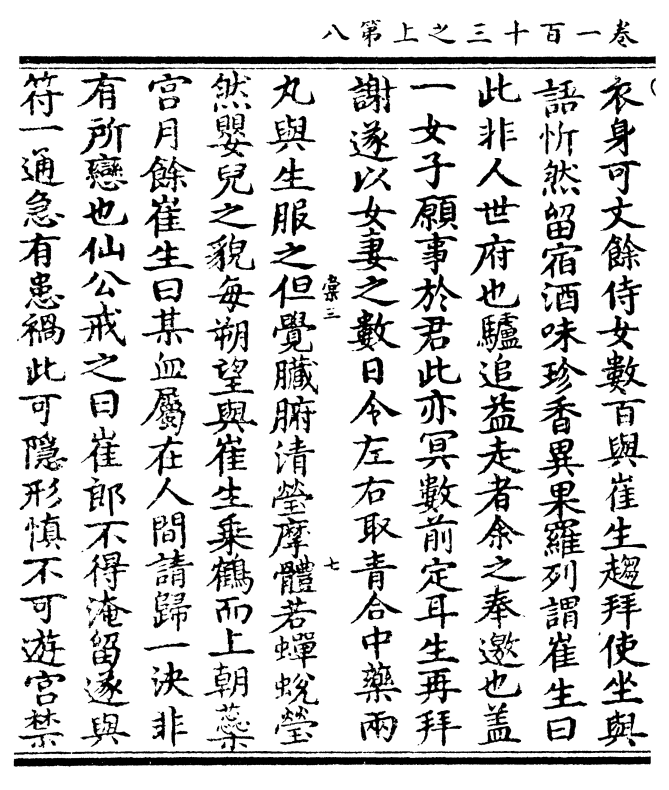 卷一百十三之上第八
衣身可丈餘侍女數百與崔生趨拜使坐與
語忻然留宿酒味珍香異果羅列謂崔生曰
此非人世府也驢追益走者余之奉邀也盖
一女子願事於君此亦冥數前定耳生再拜
謝遂以女妻之數日令左右取青合中藥兩
棠三
七
丸與生服之但覺臟腑清瑩摩體若蟬蛻瑩
然嬰兒之貌每朔望與崔生乘鶴而上朝蕊
宮月餘崔生曰某血屬在人間請歸一決非
有所戀也仙公戒之曰崔郎不得淹留遂與
符一通急有患禍此可隱形慎不可遊宮禁